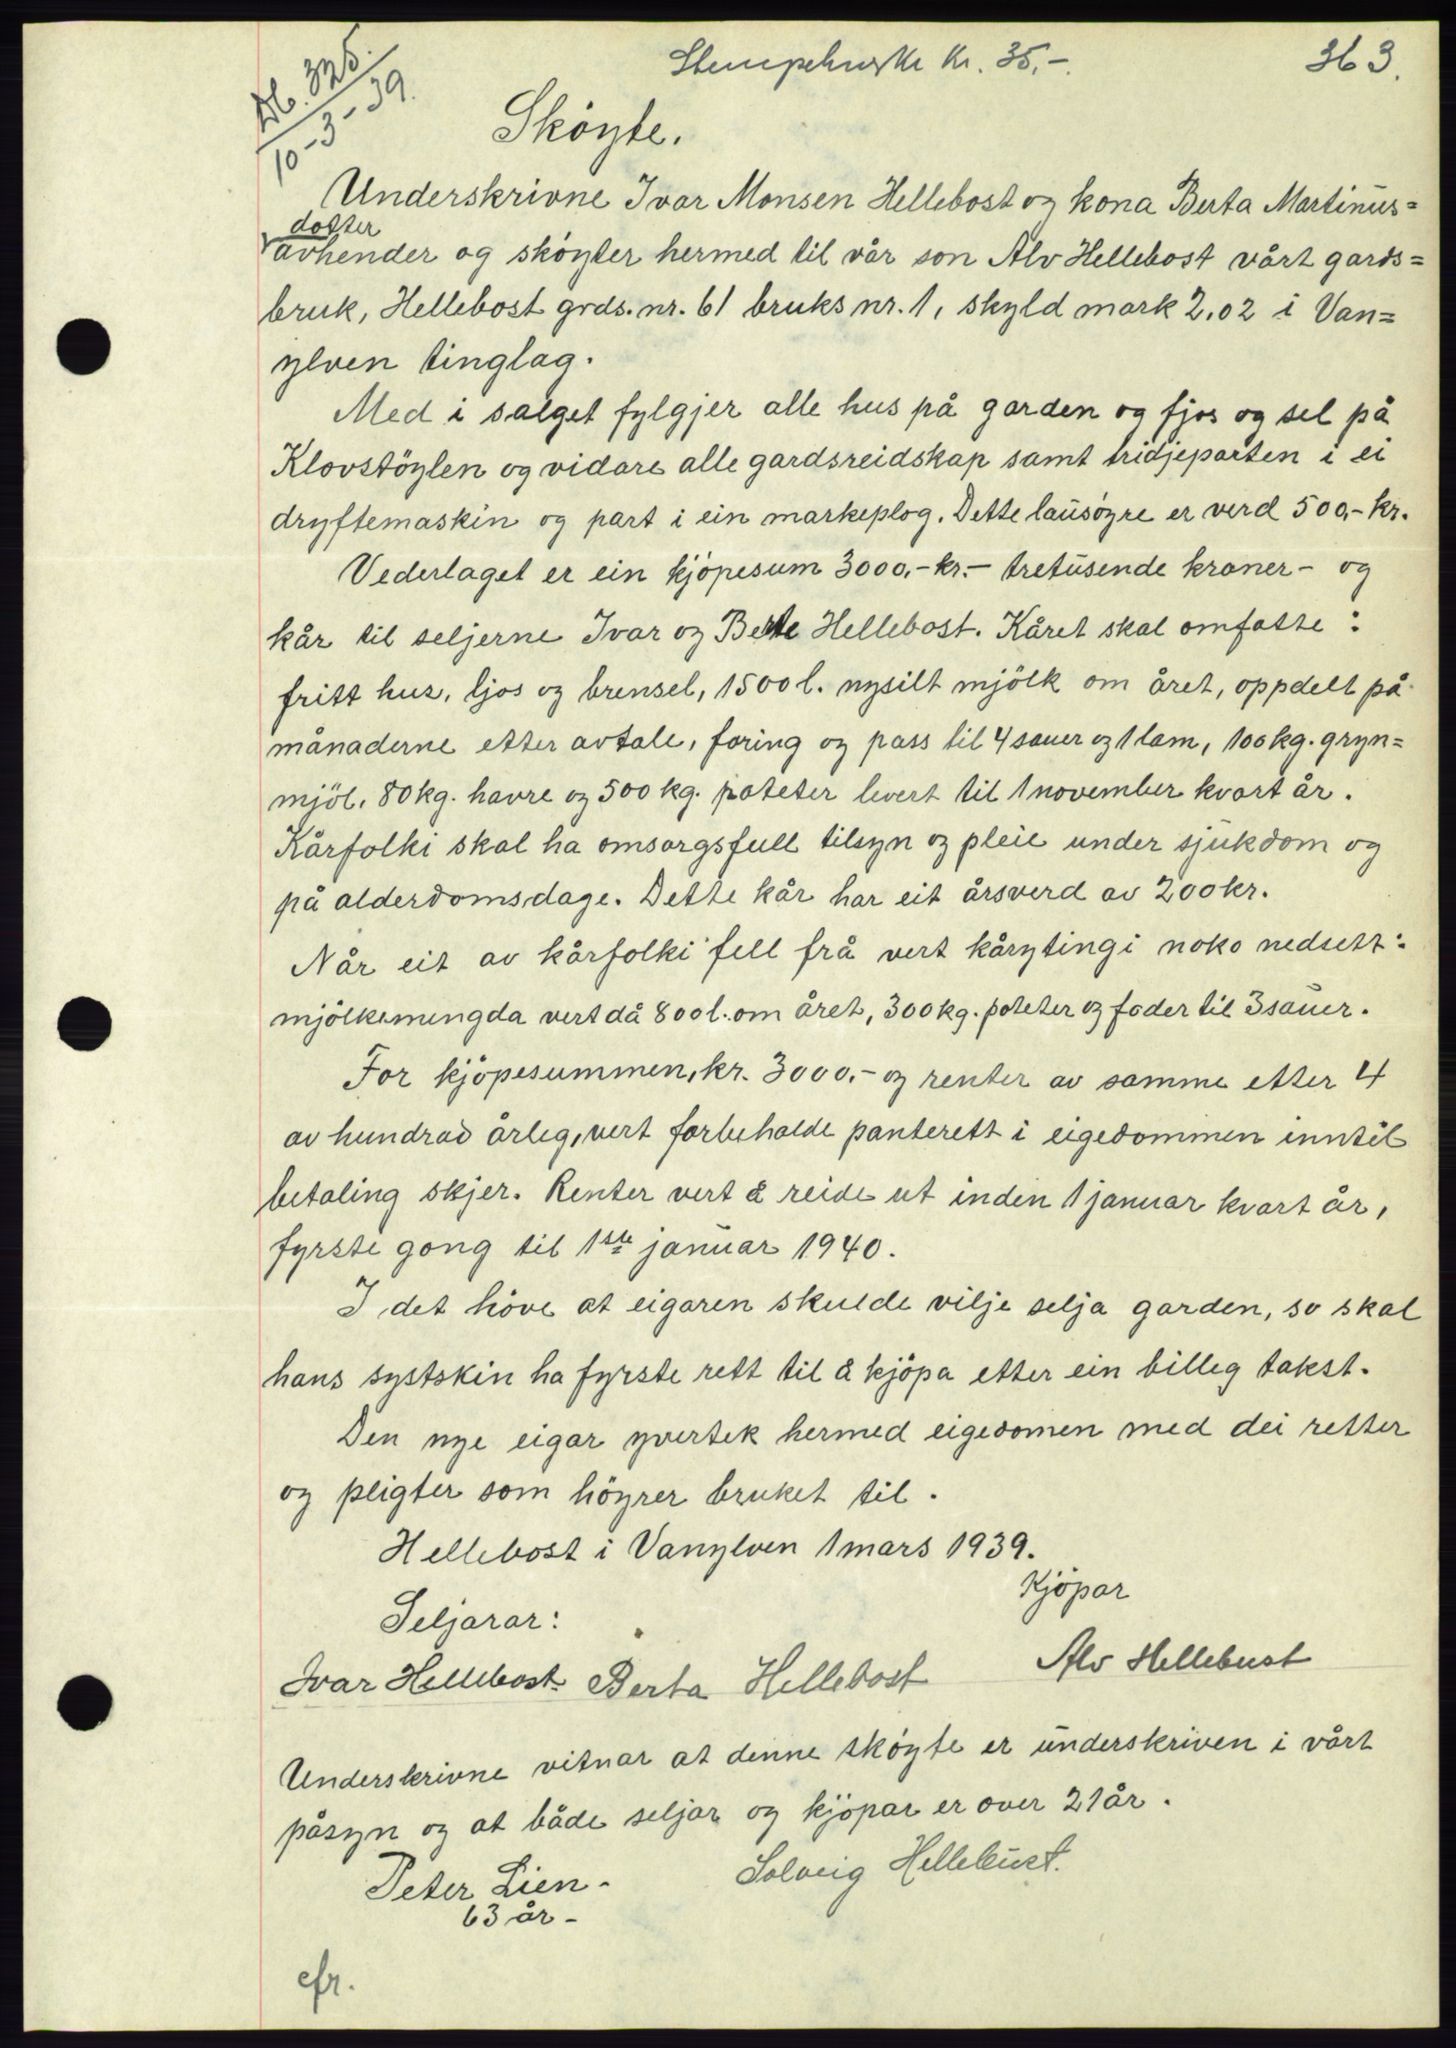 Db. 325.
10-3-39.
Stempelmerke kr. 35,-.
363.
Sköyte.
Underskrivne Ivar Monsen Hellebost og kona Berta Martinus=
dotter
avhender og sköyter hermed til vår son Alv Hellebost vårt gards=
bruk, Hellebost grds.nr. 61 bruks nr. 1, skyld mark 2,02 i Van=
ylven tinglag.
Med i salget fylgjer alle hus på garden og fjos og sel på
Klovstöylen og vidare alle gardsreidskap samt tridjeparten i ei
dryftemaskin og part i ein markeplog. Dette lausöyre er verd 500,- kr.
Vederlaget er ein kjöpesum 3000,- kr.- tretusende kroner - og
kår til seljerne Ivar og Berte Hellebost. Kåret skal omfatte :
fritt hus, ljos og brensel, 1500 l. nysilt mjölk om året, oppdelt på
månaderne etter avtale, foring og pass til 4 sauer og 1 lam, 100 kg. gryn=
mjöl, 80 kg. havre og 500 kg. poteter levert til 1 november kvart år.
Kårfolki skal ha omsorgsfull tilsyn og pleie under sjukdom og
på alderdomsdage. Dette kår har eit årsverd av 200 kr.
Når eit av kårfolki fell frå vert kårytingi noko nedsett:
mjölkemengda vert då 800 l. om året, 300 kg. poteter og foder til 3 sauer.
For kjöpesummen, kr. 3000,- og renter av samme etter 4
av hundrad årleg, vert forbeholde panterett i eigedommen inntil
betaling skjer. Renter vert å reide ut inden 1 januar kvart år,
fyrste gong til 1ste januar 1940.
I det höve at eigaren skulde vilje selja garden, so skal
hans systskin ha fyrste rett til å kjöpa etter ein billeg takst.
Den nye eigar yvertek hermed eigedomen med dei retter
og pligter som höyrer bruket til.
Hellebost i Vanylven 1 mars 1939.
Kjöpar
Seljarar:
Ivar Hellebost. Berta Hellebost Alv Hellebust
Underskrivne vitnar at denne sköyte er underskriven i vårt
påsyn og at både seljar og kjöpar er over 21 år.
Peter Lien. Solveig Hellebust.
63 år -
cfr.